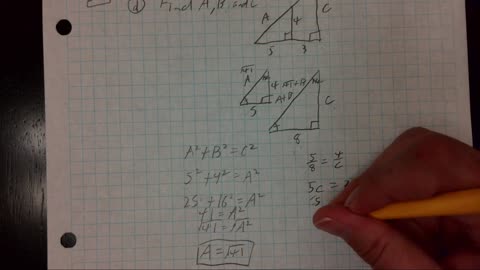 d) Find A, B, and C
A
4
C
5
3
√41
A
4
5
√41+B
A+B
C
8
A² + B² = C²
5² + 4² = A²
25 + 16 = A²
41 = A²
√41 = √A²
A = √41
5/8 = 4/C
5C =
5